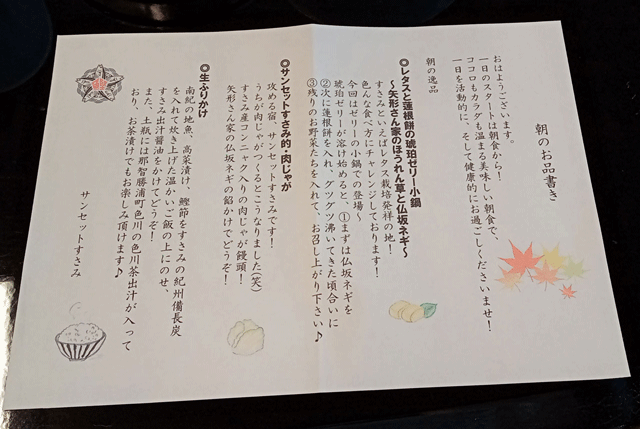 朝のお品書き
おはようございます。
一日のスタートは朝食から！
ココロもカラダも温まる美味しい朝食で、
一日を活動的に、そして健康的にお過ごしくださいませ！
朝の逸品
◎レタスと蓮根餅の琥珀ゼリー小鍋
～矢形さん家のほうれん草と仏坂ネギ～
すさみといえばレタス栽培発祥の地！
色んな食べ方にチャレンジしております！
今回はゼリーの小鍋での登場～
琥珀ゼリーが溶け始めると、①まずは仏坂ネギを
②次に蓮根餅を入れ、グツグツ沸いてきた頃合いに
③残りのお野菜たちを入れて、お召し上がり下さい♪
◎サンセットすさみ的・肉じゃが
攻める宿、サンセットすさみです！
うちが肉じゃがつくるとこうなりました(笑)
すさみ産コンニャク入りの肉じゃが饅頭！
矢形さん家の仏坂ネギの餡かけでどうぞ！
◎生ふりかけ
南紀の地魚、高菜漬け、鰹節をすさみの紀州備長炭
を入れて炊き上げた温かいご飯の上にのせ、
すさみ出汁醤油をかけてどうぞ！
また、土瓶には那智勝浦町色川の色川茶出汁が入って
おり、お茶漬けでもお楽しみ頂けます♪
サンセットすさみ